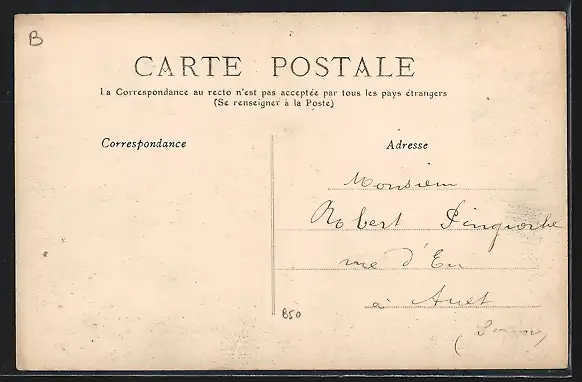 B
CARTE POSTALE
La Correspondance au recto n'est pas acceptée par tous les pays étrangers
(Se renseigner à la Poste)
Correspondance
Adresse
Monsieur
Robert
rue d'Eu
à Ault
B50